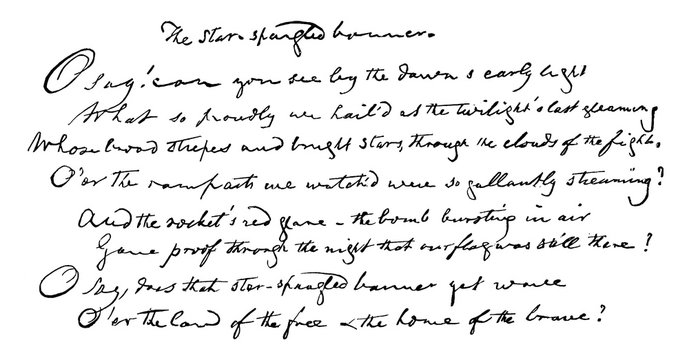 The Star-spangled banner.
O say! can you see by the dawn's early light
What so proudly we hail'd at the twilight's last gleaming
Whose broad stripes and bright stars, through the clouds of the fight.
O'er the ramparts we watch'd were so gallantly streaming?
And the rocket's red glare – the bomb bursting in air
Gave proof through the night that our flag was still there?
O say, does that star-spangled banner yet wave
O'er the land of the free & the home of the brave?